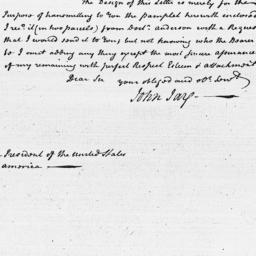 The Design of this letter is merely for the
Purpose of transmitting to You the pamphlet herewith enclosed
I rec.d it (in two parcels) from Doct.r anderson with a Request
that I would send it to You; but not knowing who the Bearer
to I omit adding any thing except the most sincere assurance
of my remaining with perfect Respect Esteem & attachment
Dear Sir your obliged and ob.t Serv.t
John Jay
President of the United States
america